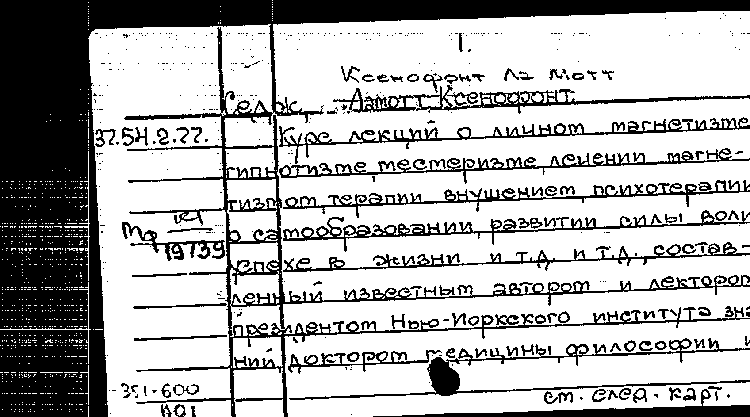 1.
Ксенофонт Ла Мотт
Седж, Ламотт Ксенофонт.
37.54.2.77. Курс лекций о личном магнетизме
гипнотизме, месмеризме, лечении магне-
тизмом, терапии внушением, психотерапии
о самообразовании, развитии силы воли
Мф К1
19739
успехе в жизни и т.д. и т.д., состав-
ленный известным автором и лектором
президентом Нью-Йоркского института зна
ний, доктором медицины, философии и
351-600
см. след. карт.